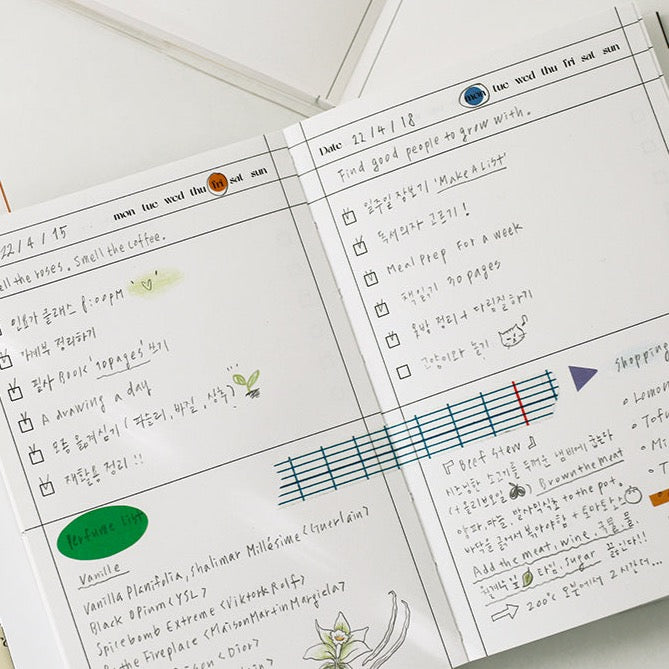 mon tue wed thu fri sat sun
22/4/15
ell the roses. Smell the coffee.
인요가 클래스 8:00PM
가계부 정리하기
필사 Book '10pages' 쓰기
A drawing a day
모종 옮겨심기 (파슬리, 바질, 상추)
재활용 정리!!
Perfume list
Vanille
Vanilla Planifolia, Shalimar Millésime <Guerlain>
Black Opium <YSL>
Spicebomb Extreme <Viktor&Rolf>
the Fireplace <Maison Martin Margiela>
<Dior>
mon tue wed thu fri sat sun
Date 22/4/18
Find good people to grow with.
일주일 장보기 'Make A List'
독서의자 고르기!
Meal prep For a week
책읽기 30pages
옷방 정리 + 다림질하기
고양이와 놀기
Shopping
「Beef Stew」
시즈닝한 고기를 두꺼운 냄비에 굽는다
(+올리브오일) Brown the meat
양파, 마늘, to the pot.
바닥을 긁어서 볶아야함 + 토마토소스
Add the meat, wine, 국물, 물,
월계수잎 타임, sugar 끓인다!!
200℃ 오븐에서 2시간반...